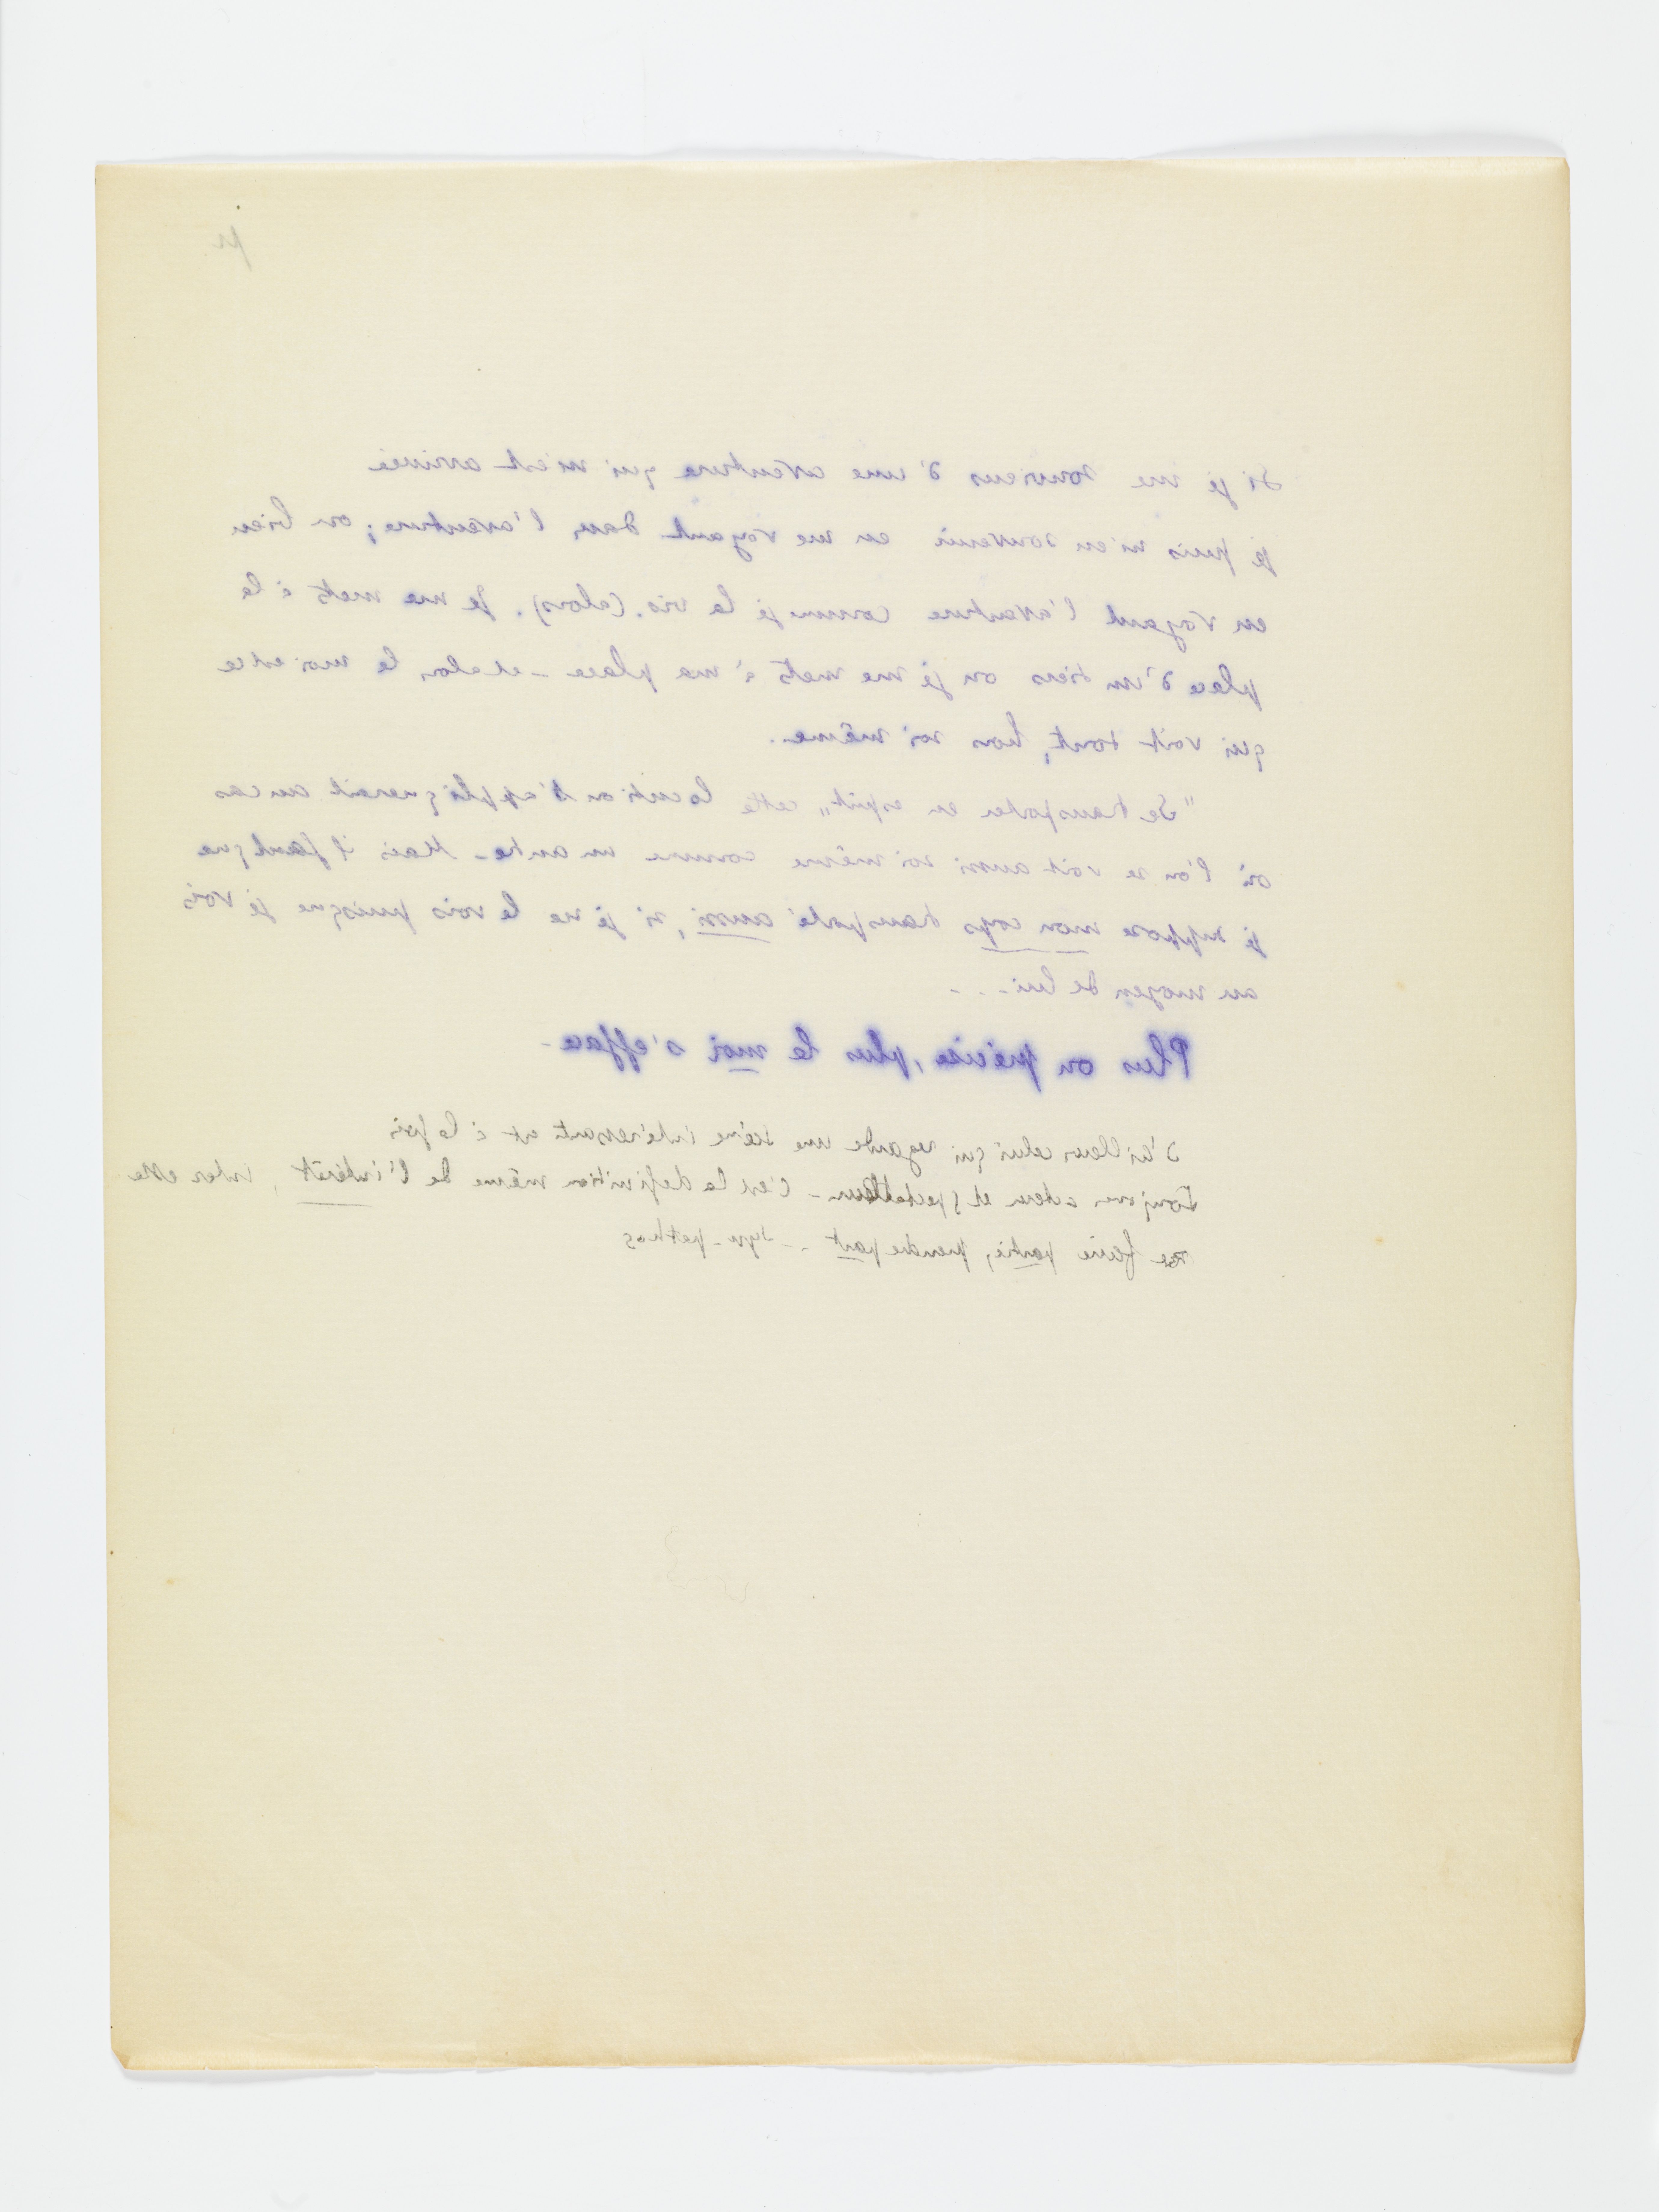 Si je me souviens d'une aventure qui m'est arrivée
je puis m'en souvenir en me voyant dans l'aventure; ou bien
en voyant l'aventure comme je la vis. (alors). Je me mets à la
place d'un tiers ou je me mets à ma place - et alors le moi est ce
qui voit tout, hors soi même.
"Se transporter en esprit" cette locution s'appliquerait au cas
où l'on se voit aussi soi même comme un autre - Mais il faut que
je suppose mon corps transporté aussi, si je ne le vois puisque je vois
au moyen de lui - . . -
Plus on précise, plus le moi s'efface -
D'ailleurs celui qui regarde une scène intéressante est à la fois
Toujours acteur et spectateur - C'est la definition même de l'intérêt, inter esse
faire partie, prendre part - . sym-pathos